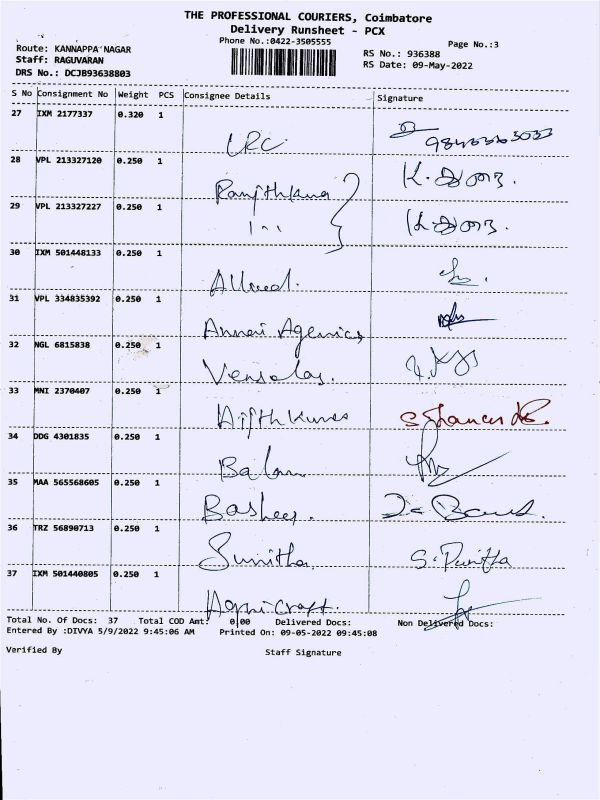 THE PROFESSIONAL COURIERS, Coimbatore
Delivery Runsheet - PCX
Phone No.:0422-3505555
Page No.:3
Route: KANNAPPA NAGAR
RS No.: 936388
Staff: RAGUVARAN
RS Date: 09-May-2022
DRS No.: DCJB93638803
S No Consignment No Weight PCS Consignee Details Signature
27 IXM 2177337 0.320 1
LRC
28 VPL 213327120 0.250 1
29 VPL 213327227 0.250 1
30 IXM 501448133 0.250 1
31 VPL 334835392 0.250 1
Annai Agenics
32 NGL 6815838 0.250 1
33 MNI 2370407 0.250 1
34 DDG 4301835 0.250 1
35 MAA 565568605 0.250 1
Basheer.
36 TRZ 56890713 0.250 1
Sunitha
37 IXM 501440805 0.250 1
Total No. Of Docs: 37 Total COD Amt: 0.00 Delivered Docs: Non Delivered Docs:
Entered By :DIVYA 5/9/2022 9:45:06 AM Printed On: 09-05-2022 09:45:08
Verified By Staff Signature